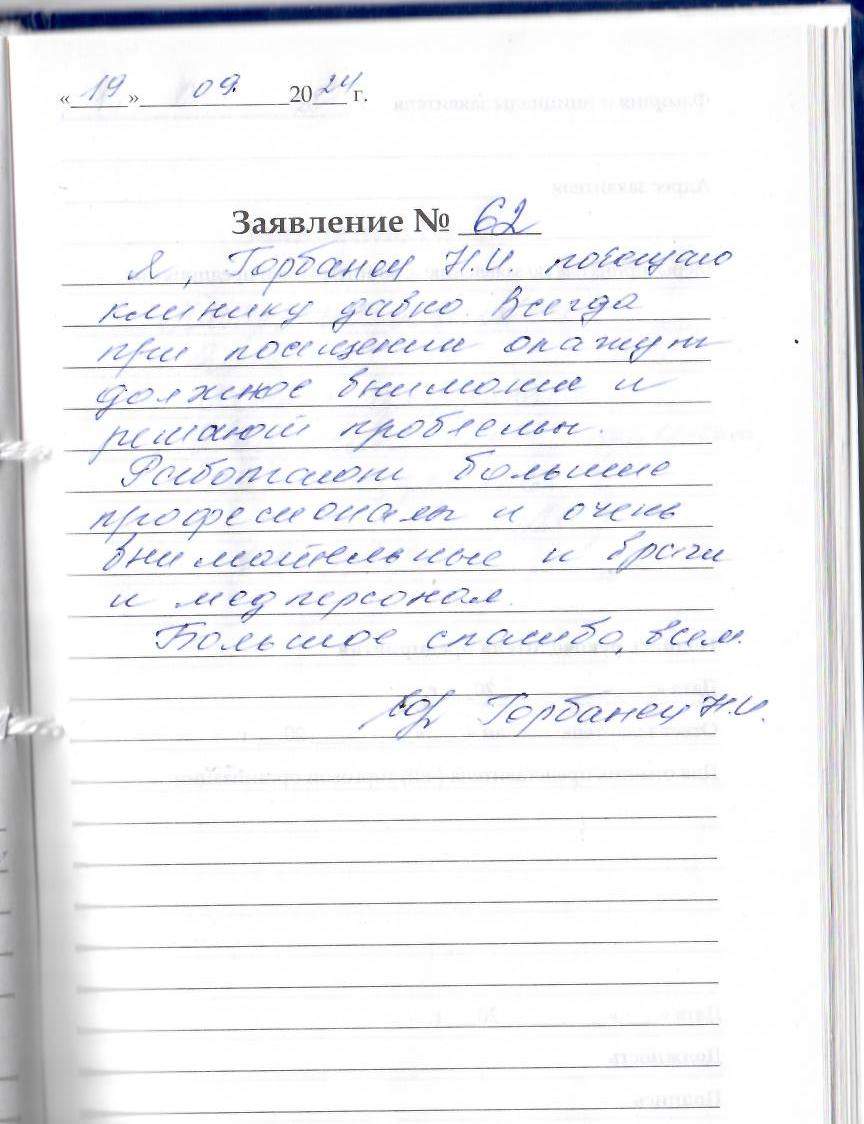 «19» 09. 2024 г.
Заявление № 62
Я, Горбанец Н.И. посещаю
клинику давно. Всегда
при посещении окажут
должное внимание и
решают проблемы.
Работают большие
професионалы и очень
внимательные и врачи
и медперсонал.
Большое спасибо, всем.
Горбанец Н.И.